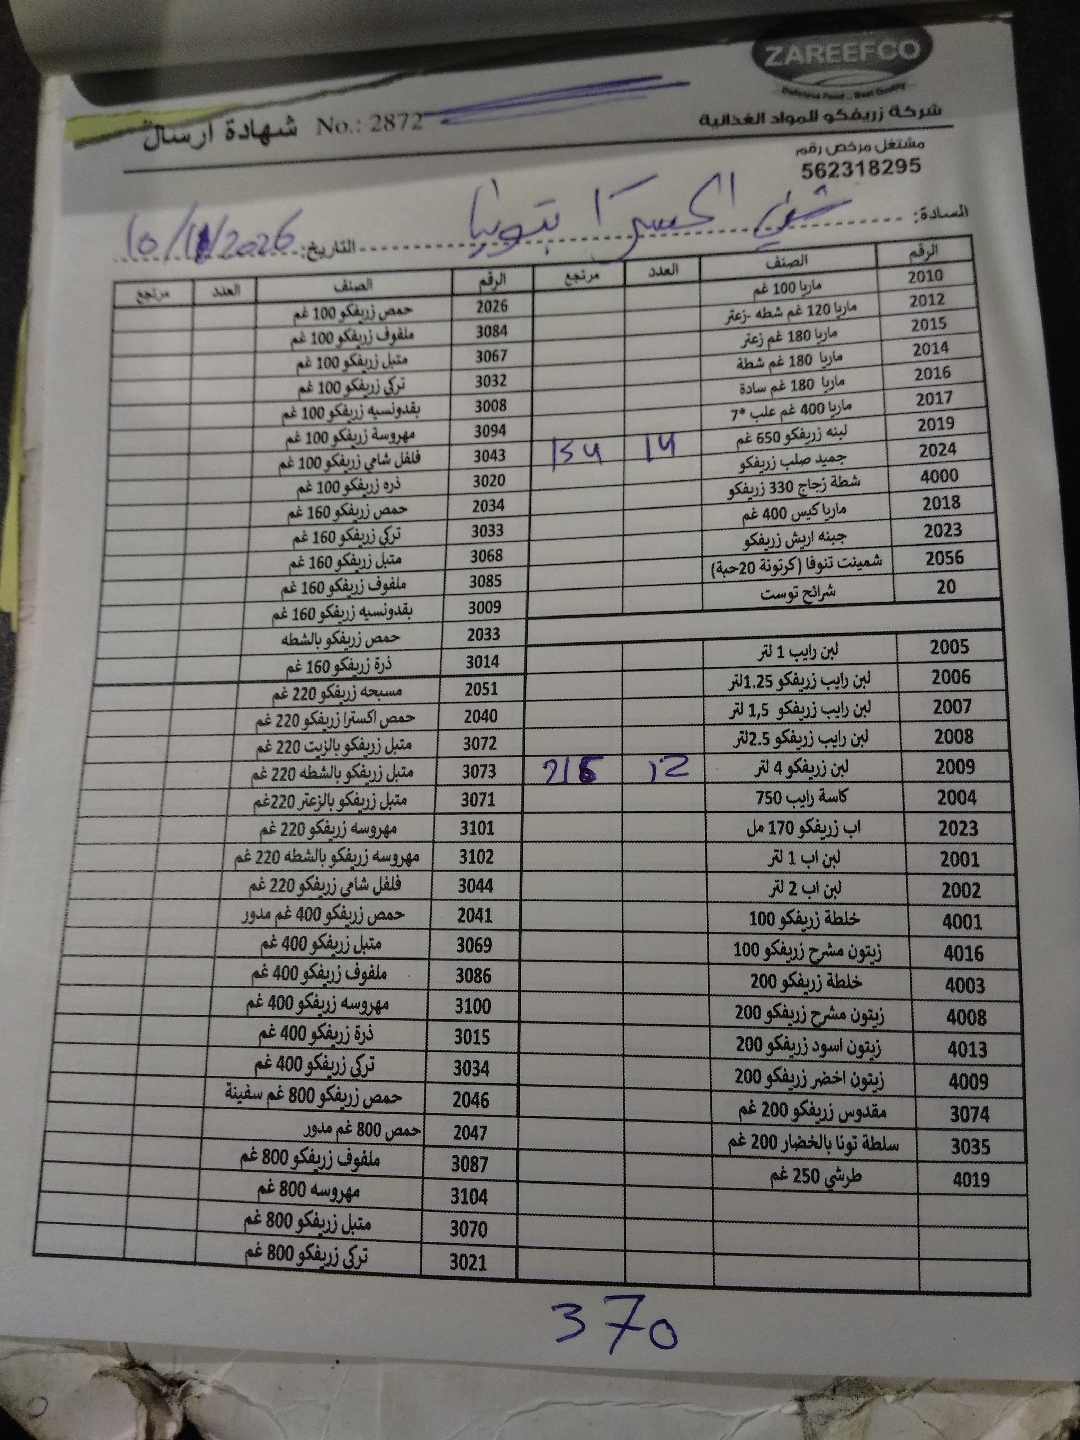 ZAREEFCO
Delicious Food .. Best Quality
شركة زريفكو للمواد الغذائية
شهادة ارسال No.: 2872
مشتغل مرخص رقم
562318295
السادة:
التاريخ: 10/1/2026
الرقم الصنف العدد مرتجع
2010 ماريا 100 غم
2012 ماريا 120 غم شطه -زعتر
2015 ماريا 180 غم زعتر
2014 ماريا 180 غم شطة
2016 ماريا 180 غم سادة
2017 ماريا 400 غم علب *7
2019 لبنه زريفكو 650 غم 14 154
2024 جميد صلب زريفكو
4000 شطة زجاج 330 زريفكو
2018 ماريا كيس 400 غم
2023 جبنه اريش زريفكو
2056 شمينت تنوفا (كرتونة 20حبة)
20 شرائح توست
2005 لبن رايب 1 لتر
2006 لبن رايب زريفكو 1.25لتر
2007 لبن رايب زريفكو 1,5 لتر
2008 لبن رايب زريفكو 2.5لتر
2009 لبن زريفكو 4 لتر 12 216
2004 كاسة رايب 750
2023 اب زريفكو 170 مل
2001 لبن اب 1 لتر
2002 لبن اب 2 لتر
4001 خلطة زريفكو 100
4016 زيتون مشرح زريفكو 100
4003 خلطة زريفكو 200
4008 زيتون مشرح زريفكو 200
4013 زيتون اسود زريفكو 200
4009 زيتون اخضر زريفكو 200
3074 مقدوس زريفكو 200 غم
3035 سلطة تونا بالخضار 200 غم
4019 طرشي 250 غم
الرقم الصنف العدد مرتجع
2026 حمص زريفكو 100 غم
3084 ملفوف زريفكو 100 غم
3067 متبل زريفكو 100 غم
3032 تركي زريفكو 100 غم
3008 بقدونسيه زريفكو 100 غم
3094 مهروسة زريفكو 100 غم
3043 فلفل شامي زريفكو 100 غم
3020 ذره زريفكو 100 غم
2034 حمص زريفكو 160 غم
3033 تركي زريفكو 160 غم
3068 متبل زريفكو 160 غم
3085 ملفوف زريفكو 160 غم
3009 بقدونسيه زريفكو 160 غم
2033 حمص زريفكو بالشطه
3014 ذرة زريفكو 160 غم
2051 مسبحه زريفكو 220 غم
2040 حمص اكسترا زريفكو 220 غم
3072 متبل زريفكو بالزيت 220 غم
3073 متبل زريفكو بالشطه 220 غم
3071 متبل زريفكو بالزعتر 220غم
3101 مهروسه زريفكو 220 غم
3102 مهروسه زريفكو بالشطه 220 غم
3044 فلفل شامي زريفكو 220 غم
2041 حمص زريفكو 400 غم مدور
3069 متبل زريفكو 400 غم
3086 ملفوف زريفكو 400 غم
3100 مهروسه زريفكو 400 غم
3015 ذرة زريفكو 400 غم
3034 تركي زريفكو 400 غم
2046 حمص زريفكو 800 غم سفينة
2047 حمص 800 غم مدور
3087 ملفوف زريفكو 800 غم
3104 مهروسه 800 غم
3070 متبل زريفكو 800 غم
3021 تركي زريفكو 800 غم
370